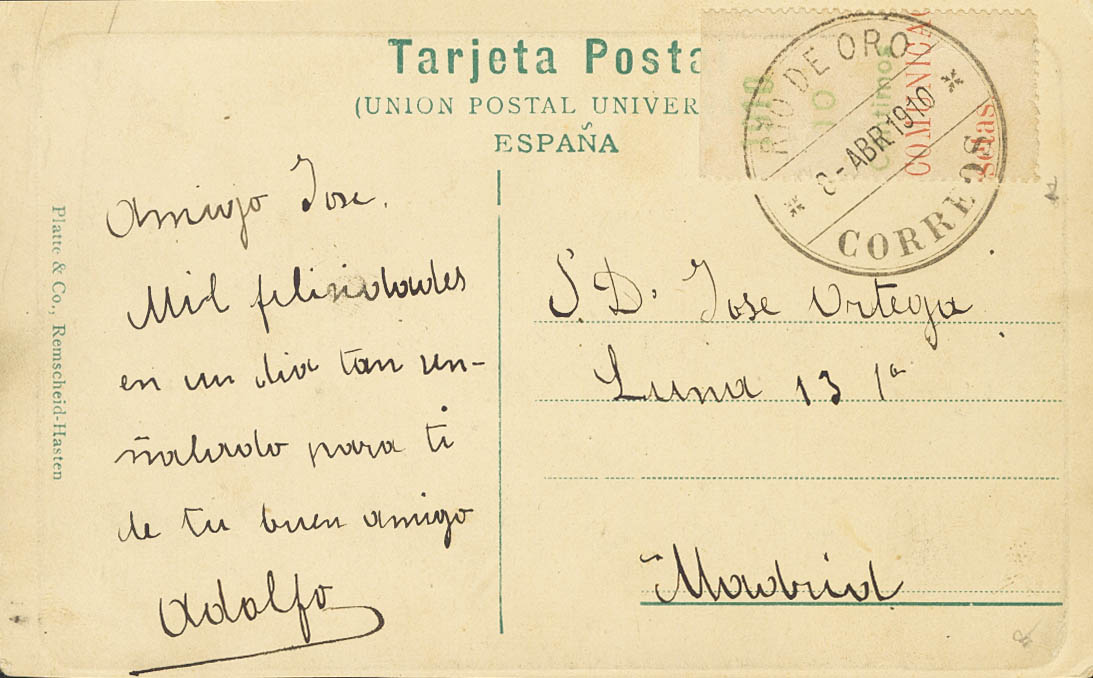 Tarjeta Posta
(UNION POSTAL UNIVER
ESPAÑA
1910
10
Céntimos
COMUNICAC
setas
RIO DE ORO
8-ABR 1910
CORREOS
Platte & Co., Remscheid-Hasten
Amigo Jose.
Mil felicidades
en un dia tan sen-
ñalado para ti
de tu buen amigo
Adolfo
S. D. Jose Ortega
Luna 13 1º
Madrid